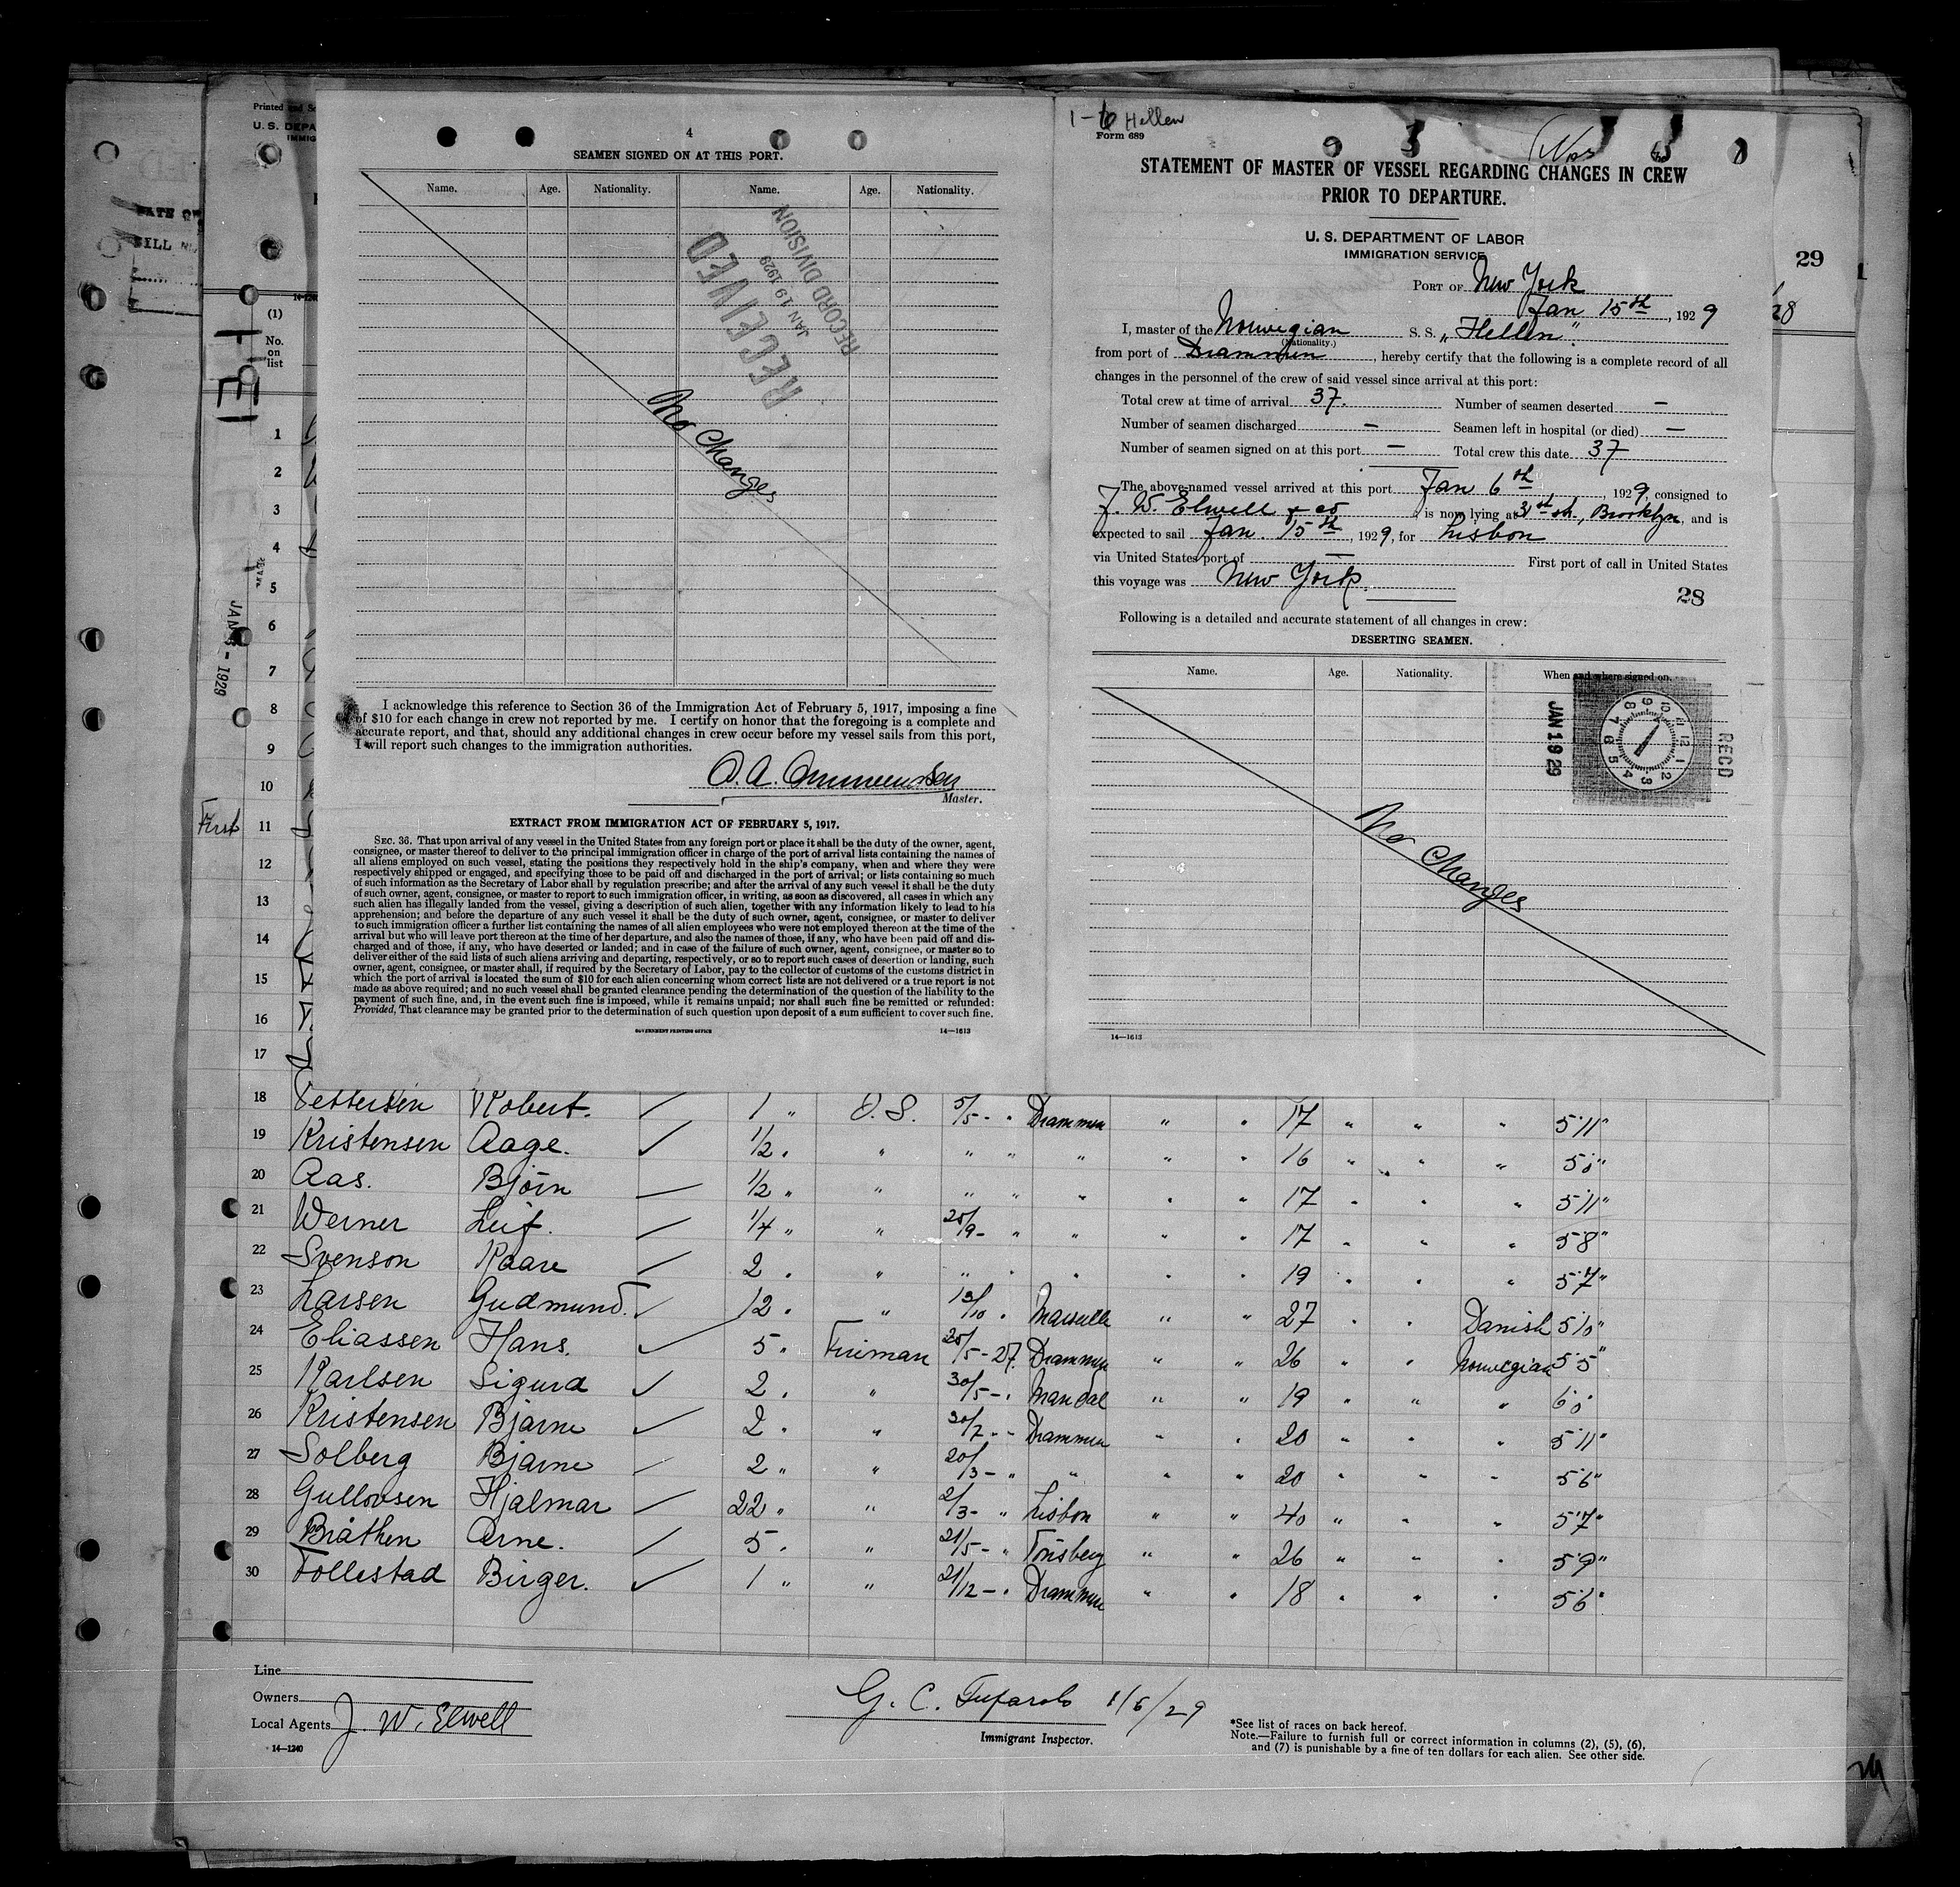 Printed and
U. S. DEPA
IMMIG
(1)
No.
on
list
1
2
3
4
5
6
7
8
9
First
10
11
12
13
14
15
16
17
4
SEAMEN SIGNED ON AT THIS PORT.
Name. Age. Nationality. Name. Age. Nationality.
RECEIVED
JAN 19 1929
RECORD DIVISION
No Changes
I acknowledge this reference to Section 36 of the Immigration Act of February 5, 1917, imposing a fine
of $10 for each change in crew not reported by me. I certify on honor that the foregoing is a complete and
accurate report, and that, should any additional changes in crew occur before my vessel sails from this port,
I will report such changes to the immigration authorities.
Master.
EXTRACT FROM IMMIGRATION ACT OF FEBRUARY 5, 1917.
SEC. 36. That upon arrival of any vessel in the United States from any foreign port or place it shall be the duty of the owner, agent,
consignee, or master thereof to deliver to the principal immigration officer in charge of the port of arrival lists containing the names of
all aliens employed on such vessel, stating the positions they respectively hold in the ship's company, when and where they were
respectively shipped or engaged, and specifying those to be paid off and discharged in the port of arrival; or lists containing so much
of such information as the Secretary of Labor shall by regulation prescribe; and after the arrival of any such vessel it shall be the duty
of such owner, agent, consignee, or master to report to such immigration officer, in writing, as soon as discovered, all cases in which any
such alien has illegally landed from the vessel, giving a description of such alien, together with any information likely to lead to his
apprehension; and before the departure of any such vessel it shall be the duty of such owner, agent, consignee, or master to deliver
to such immigration officer a further list containing the names of all alien employees who were not employed thereon at the time of the
arrival but who will leave port thereon at the time of her departure, and also the names of those, if any, who have been paid off and dis-
charged and of those, if any, who have deserted or landed; and in case of the failure of such owner, agent, consignee, or master so to
deliver either of the said lists of such aliens arriving and departing, respectively, or so to report such cases of desertion or landing, such
owner, agent, consignee, or master shall, if required by the Secretary of Labor, pay to the collector of customs of the customs district in
which the port of arrival is located the sum of $10 for each alien concerning whom correct lists are not delivered or a true report is not
made as above required; and no such vessel shall be granted clearance pending the determination of the question of the liability to the
payment of such fine, and, in the event such fine is imposed, while it remains unpaid; nor shall such fine be remitted or refunded:
Provided, That clearance may be granted prior to the determination of such question upon deposit of a sum sufficient to cover such fine.
GOVERNMENT PRINTING OFFICE 14—1613
1-6 Hellen
Form 689
Nor
STATEMENT OF MASTER OF VESSEL REGARDING CHANGES IN CREW
PRIOR TO DEPARTURE.
U. S. DEPARTMENT OF LABOR
IMMIGRATION SERVICE
PORT OF New York
Jan 15th, 1929
I, master of the Norwegian S. S. "Hellen"
(Nationality.)
from port of Drammen, hereby certify that the following is a complete record of all
changes in the personnel of the crew of said vessel since arrival at this port:
Total crew at time of arrival 37. Number of seamen deserted —
Number of seamen discharged — Seamen left in hospital (or died) —
Number of seamen signed on at this port — Total crew this date 37
The above-named vessel arrived at this port Jan 6th, 1929, consigned to
J. W. Elwell & co is now lying at 31st st., Brooklyn, and is
expected to sail Jan. 15th, 1929, for Lisbon
via United States port of — First port of call in United States
this voyage was New York.
28
Following is a detailed and accurate statement of all changes in crew:
DESERTING SEAMEN.
Name. Age. Nationality. When and where signed on.
JAN 19 29
RECD
No Changes
14—1613
29
28
18 Pettersen Robert. 1 " O. S. 5/5 - " Drammen " " 17 " " " 5'11"
19 Kristensen Aage. 1/2 " " " " " " " 16 " " " 5'0"
20 Aas. Björn 1/2 " " " " " " " 17 " " " 5'11"
21 Werner Leif. 1/4 " " 25/9 - " " " " 17 " " " 5'8"
22 Svenson Kaare 2 " " " " " " " 19 " " " 5'7"
23 Larsen Gudmund. 12 " " 13/10 " Marseille " " 27 " " Danish 5'10"
24 Eliassen Hans. 5 " Fireman 25/5 - 27. Drammen " " 26 " " Norwegian 5'5"
25 Karlsen Sigurd 2 " " 30/5 - " Mandal " " 19 " " " 6'0"
26 Kristensen Bjarne 2 " " 30/7 - " Drammen " " 20 " " " 5'11"
27 Solberg Bjarne 2 " " 20/3 - " " " " 20 " " " 5'6"
28 Gullovsen Hjalmar 22 " " 2/3 - " Lisbon " " 40 " " " 5'7"
29 Bråthen Arne. 5 " " 21/5 - " Tönsberg " " 26 " " " 5'9"
30 Tollestad Birger. 1 " " 21/12 - " Drammen " " 18 " " " 5'6"
Line
Owners
Local Agents J. W. Elwell
14—1240
G. C. 1/6/29
Immigrant Inspector.
*See list of races on back hereof.
Note.—Failure to furnish full or correct information in columns (2), (5), (6),
and (7) is punishable by a fine of ten dollars for each alien. See other side.